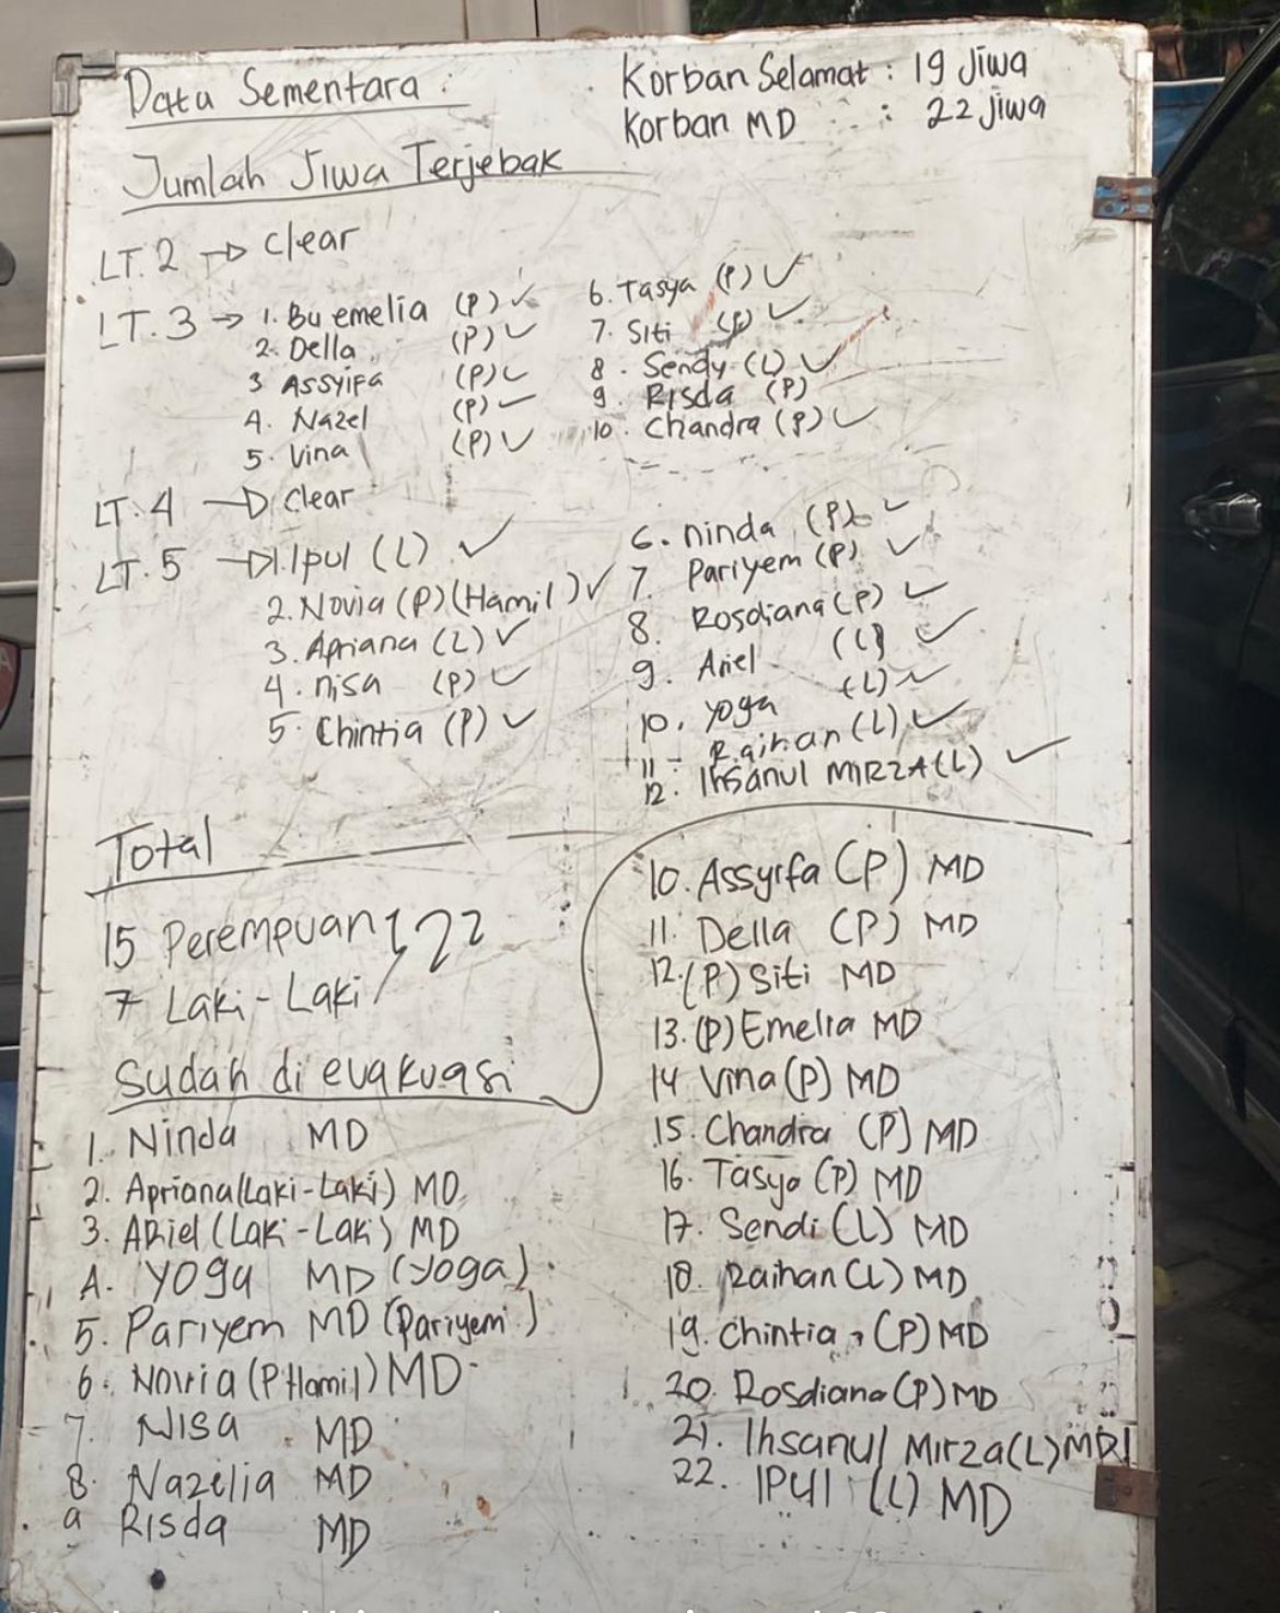 Data Sementara :
Korban Selamat : 19 Jiwa
Korban MD : 22 jiwa
Jumlah Jiwa Terjebak
LT. 2 → Clear
LT. 3 → 1. Bu emelia (P) ✓
2. Della (P) ✓
3 ASSYIFA (P) ✓
4. Nazel (P) ✓
5. Vina (P) ✓
6. Tasya (P) ✓
7. Siti (P) ✓
8. Sendy (L) ✓
9. Risda (P)
10. Chandra (P) ✓
LT. 4 → Clear
LT. 5 → 1. Ipul (L) ✓
2. Novia (P) (Hamil) ✓
3. Apriana (L) ✓
4. nisa (P) ✓
5. Chintia (P) ✓
6. ninda (P) ✓
7. Pariyem (P) ✓
8. Rosdiana (P) ✓
9. Ariel (L) ✓
10. yoga (L) ✓
11. Raihan (L) ✓
12. Ihsanul MIRZA (L) ✓
Total
15 Perempuan } 22
7 Laki-Laki
Sudah di evakuasi
1. Ninda MD
2. Apriana (Laki-Laki) MD
3. ARiel (Laki-Laki) MD
4. YOga MD (Yoga)
5. Pariyem MD (Pariyem)
6. Novia (P Hamil) MD
7. NISa MD
8. Nazelia MD
9 Risda MD
10. Assyifa (P) MD
11. Della (P) MD
12. (P) Siti MD
13. (P) Emelia MD
14 Vina (P) MD
15. Chandra (P) MD
16. Tasya (P) MD
17. Sendi (L) MD
18. Raihan (L) MD
19. Chintia, (P) MD
20. Rosdiana (P) MD
21. Ihsanul Mirza (L) MD
22. IPUl (L) MD